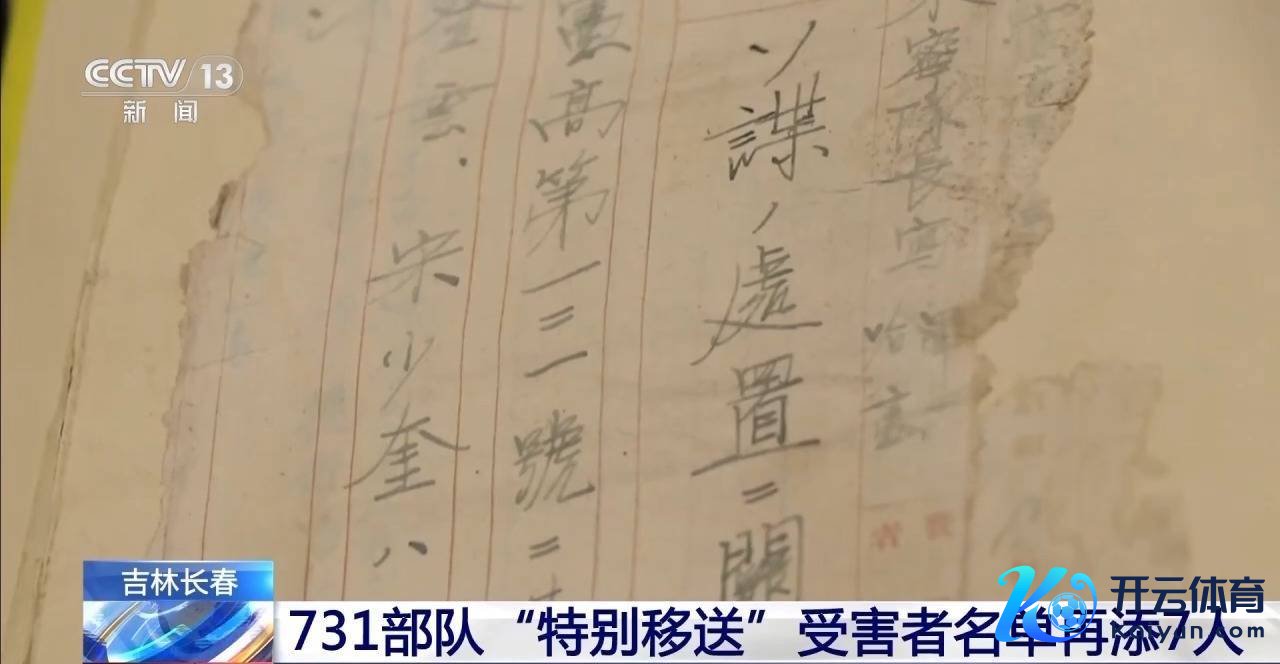 CCTV 13
新闻
東寧隊長寫
ソ諜ノ處置ニ關
憲高第一二一號ニ
宋少奎ハ
吉林长春
731部队“特别移送”受害者名单再添7人
开云体育
Kaiyun.com